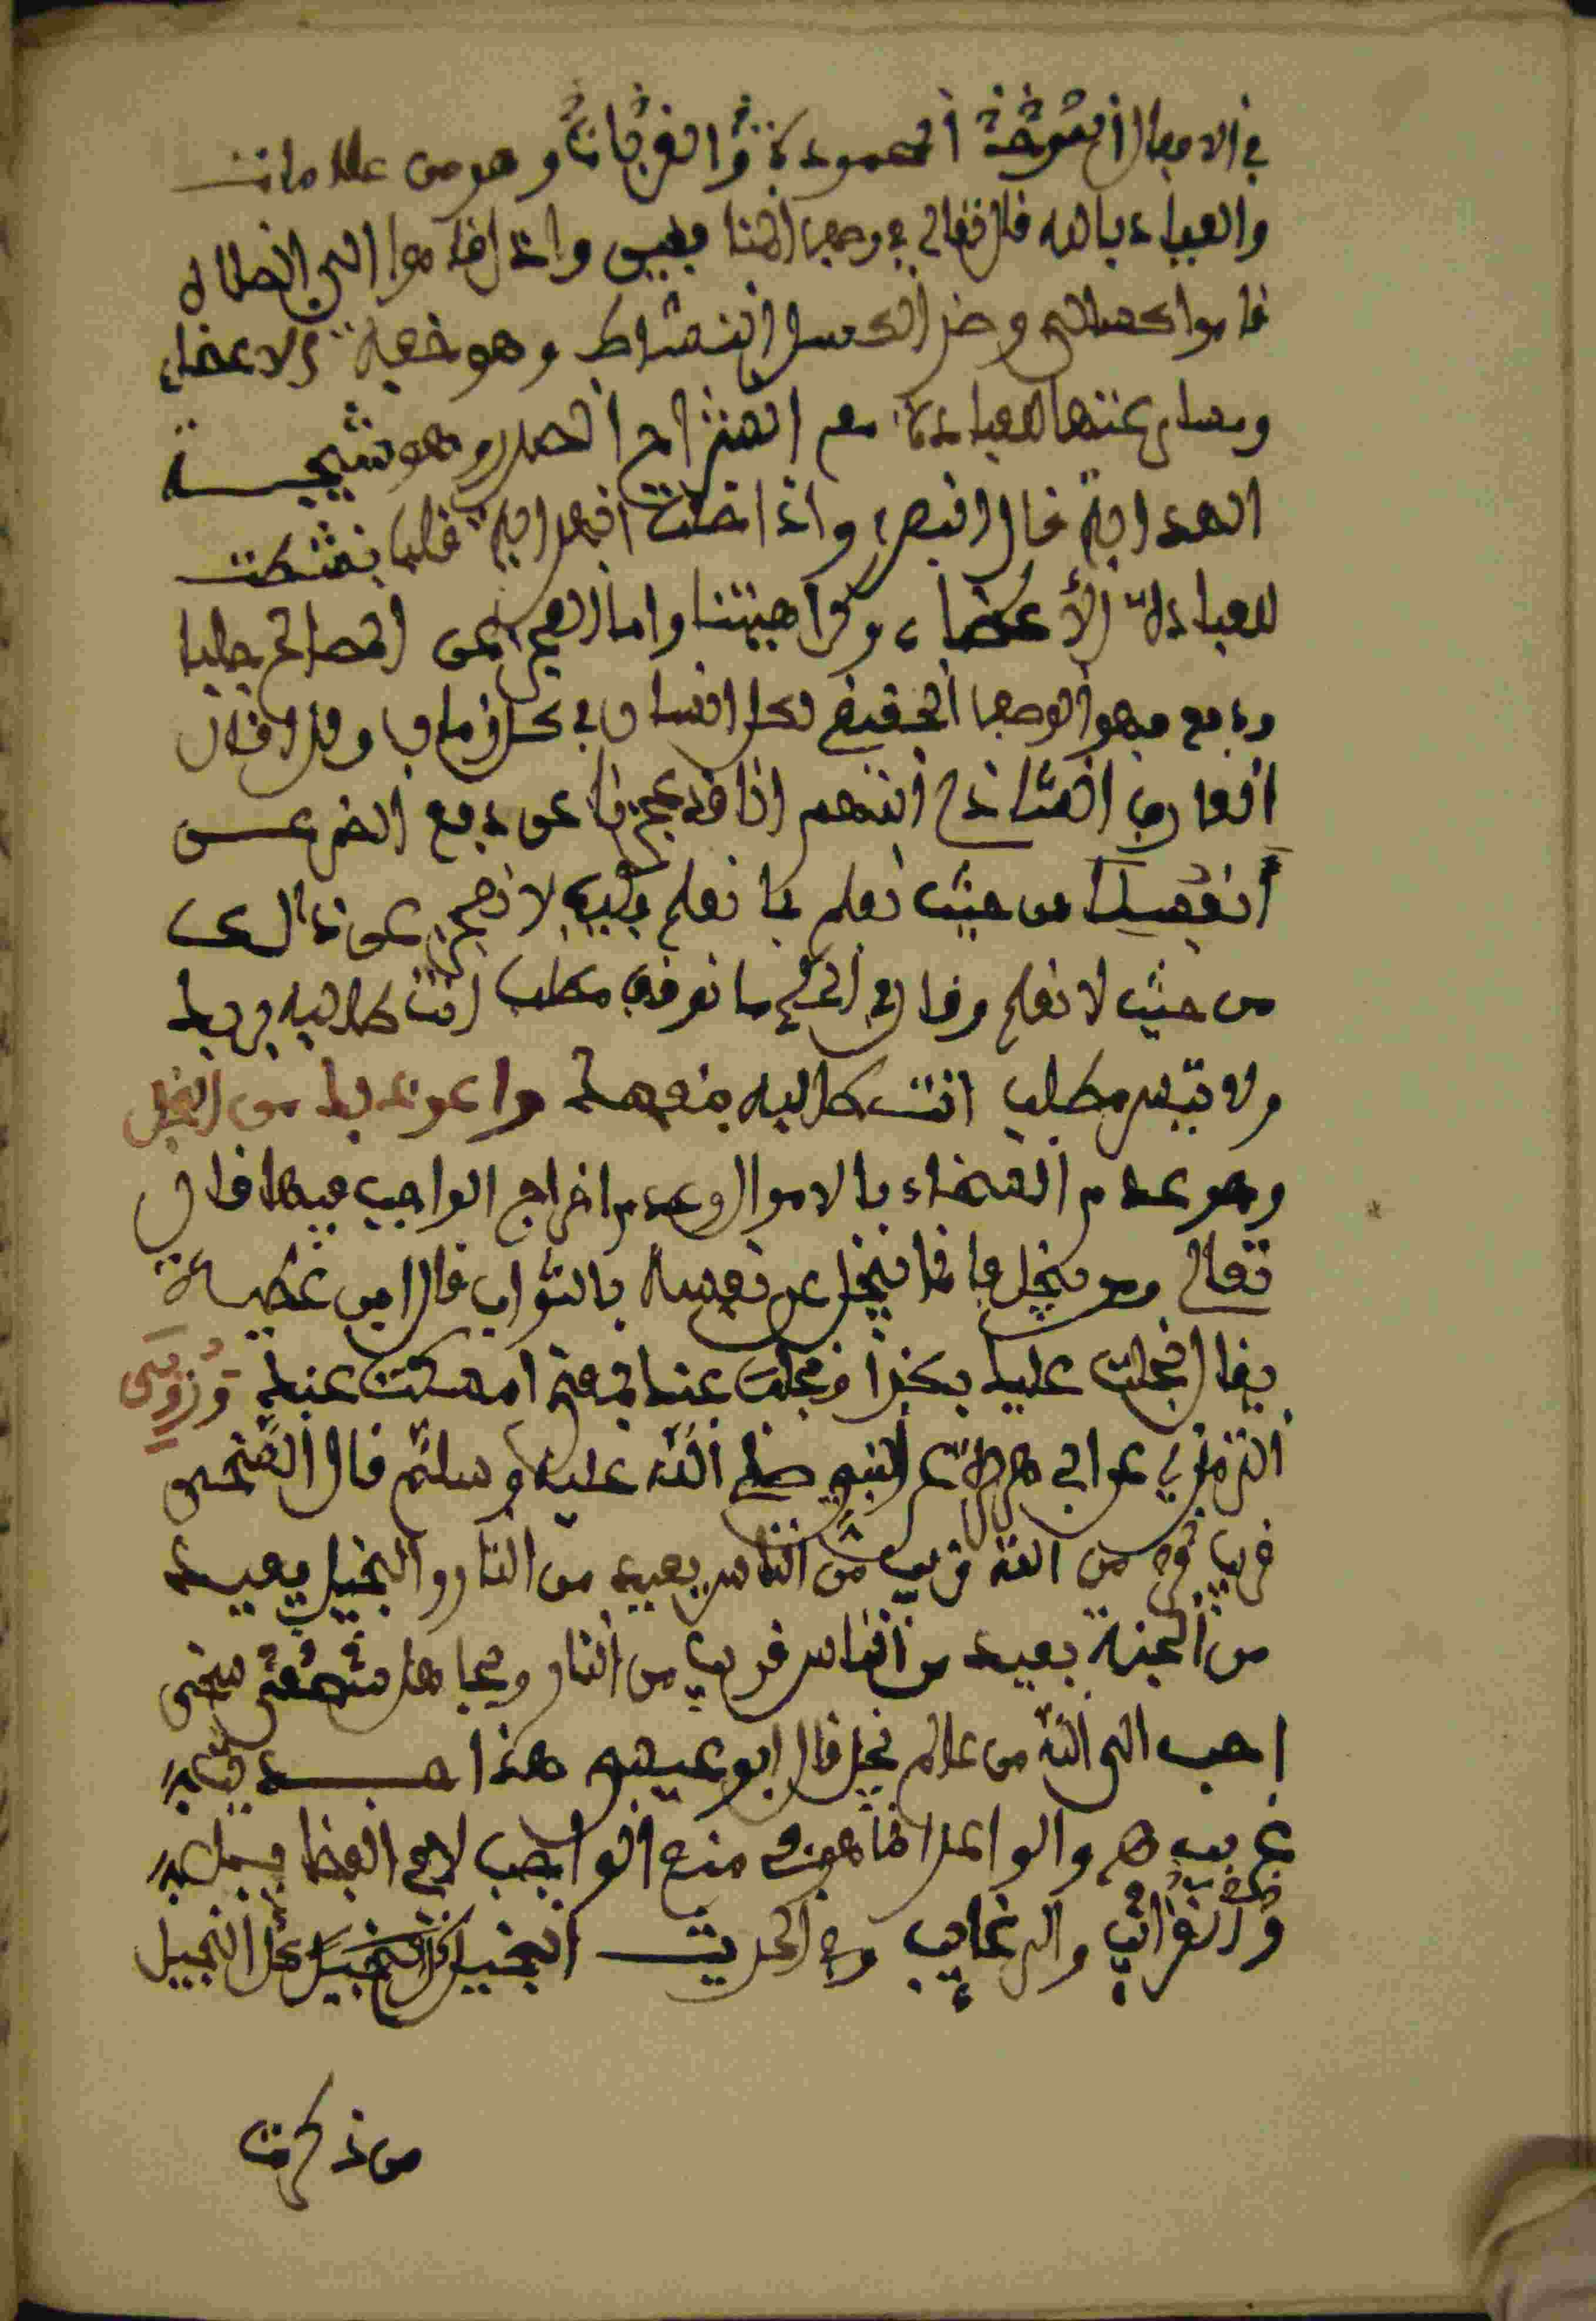 في الافعال المحمودة والقربات وهو من علامات
والعياذ بالله قال تعالى في وصف المنافقين واذا قاموا الى الصلاة
قاموا كسالى وضد الكسل النشاط وهو خفة الاعضاء
ومسارعتها للعبادة مع انشراح الصدر وهو نتيجة
الهداية قال البوصيري واذا حلت الهداية قلبا نشطت
للعبادة الأعضاء وكراهيتنا واما العجز عن المصالح جلبا
ودفع فهو الوصف الحقيقي لكل انسان في كل زمان وقد قال
العارف الشاذلي اللهم انا قد عجزنا عن دفع الضر عن
أنفسنا من حيث نعلم بما نعلم فكيف لا نعجز عن ذالك
من حيث لا نعلم وقال في الحكم ما توقف مطلب انت طالبه بربك
ولا تيسر مطلب انت طالبه بنفسك واعوذ بك من البخل
وهو عدم السخاء بالاموال وعدم اخراج الواجب فيها قال
تعالى ومن يبخل فانما يبخل عن نفسه بالثواب قال ابن عطية
يقال بخلت عليك بكذا وبخلت عنك بمعنى امسكت عنك وروى
الترمذي عن ابي هريرة عن النبي صلى الله عليه وسلم قال السخي
قريب من الله قريب من الناس بعيد من النار والبخيل بعيد
من الجنة بعيد من الناس قريب من النار ولجاهل سخي
احب الى الله من عالم بخيل قال ابو عيسى هذا حديث
غريب هـ والواعد انما هو في منع الواجب لا في
والقرائب والرغايب وفي الحديث البخيل كل البخيل
من ذكرت